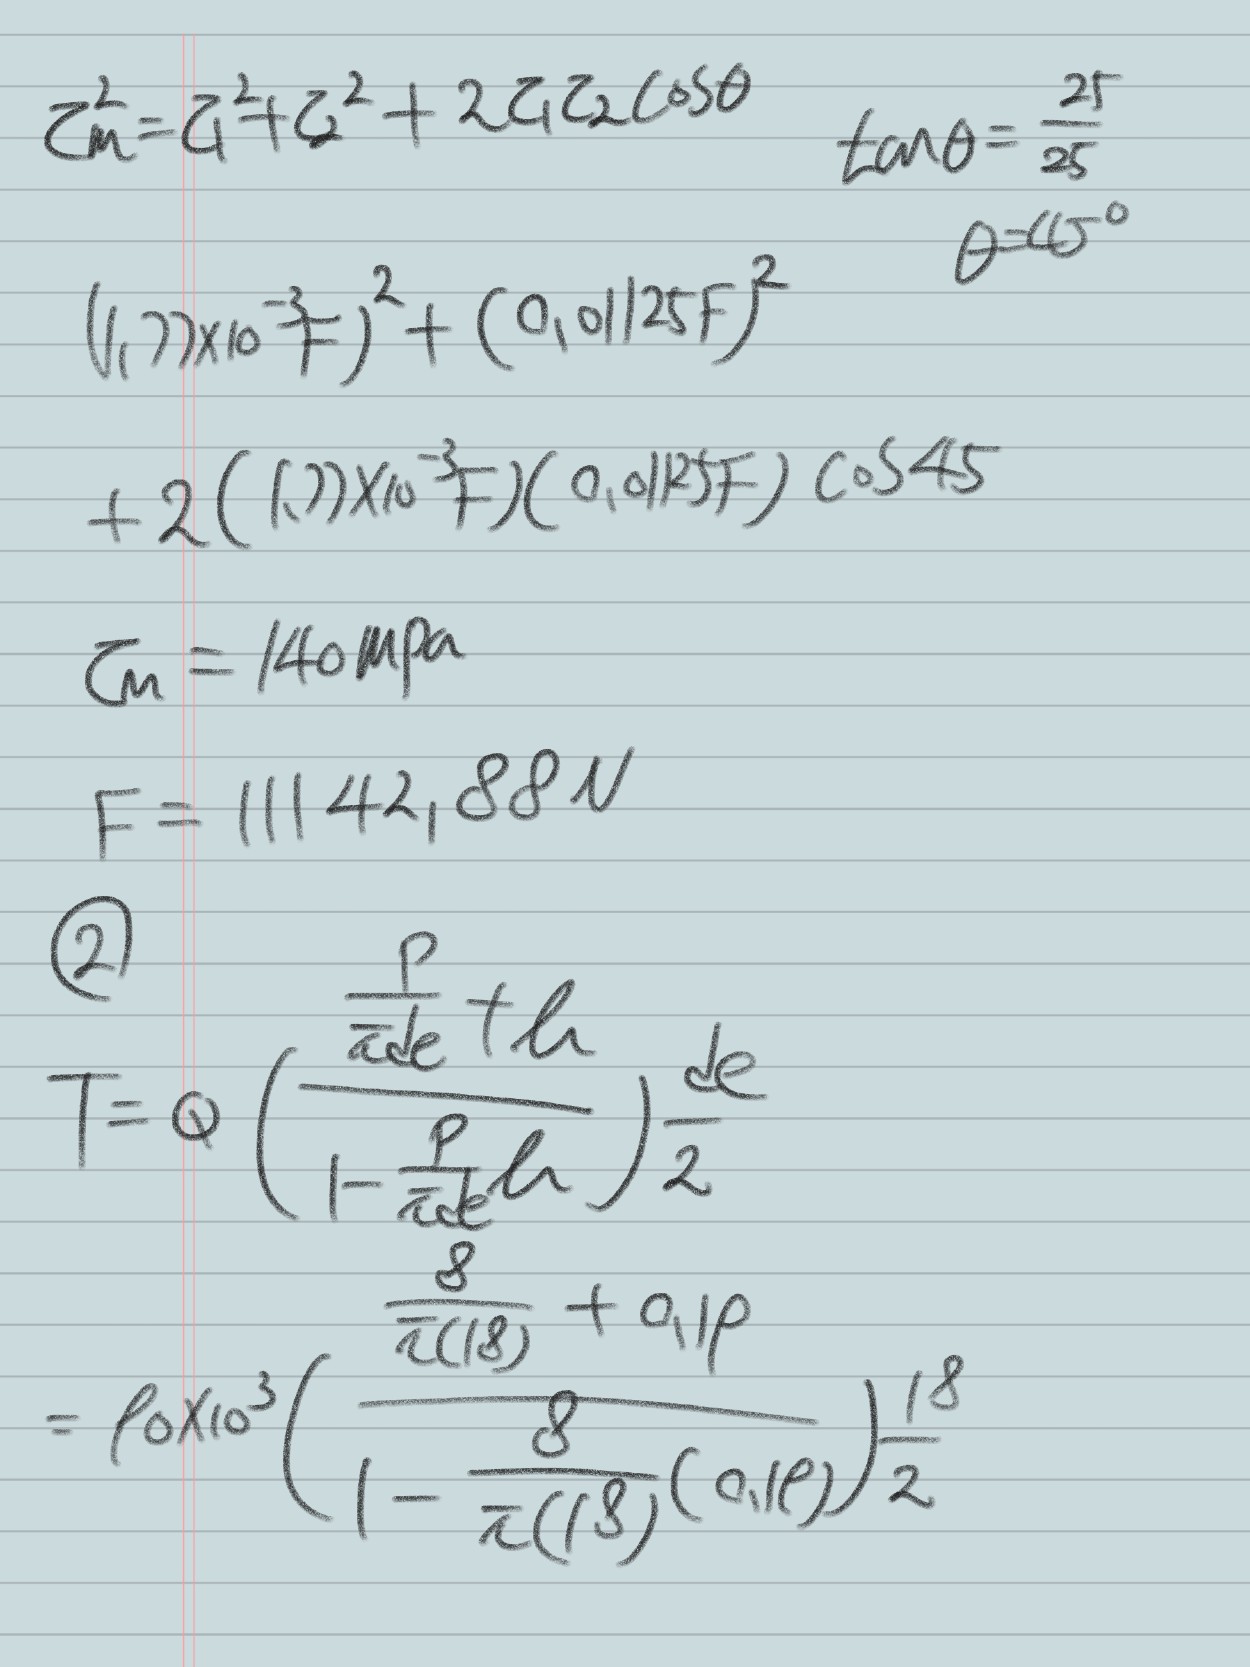 τm² = τ1² + τ2² + 2τ1τ2 cosθ
tanθ = 25/25
θ = 45°
(1,77×10⁻³F)² + (0,01125F)²
+ 2(1,77×10⁻³F)(0,01125F) cos45
τm = 140mpa
F = 11142,88N
②
T = Q ((p/πde + μ)/(1 - p/πde μ)) de/2
= 90×10³ ((8/π(18) + 0,19)/(1 - 8/π(18) (0,19))) 18/2